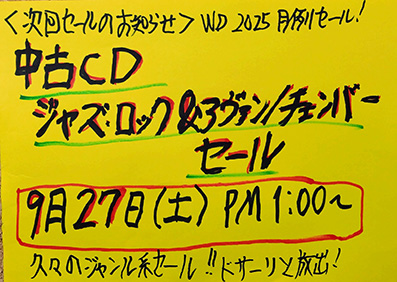 <次回セールのお知らせ> WD 2025 月例セール!
中古CD
ジャズ・ロック&アヴァン/チェンバー
セール
9月27日(土) PM 1:00~
久々のジャンル系セール!!ドサーリと放出!